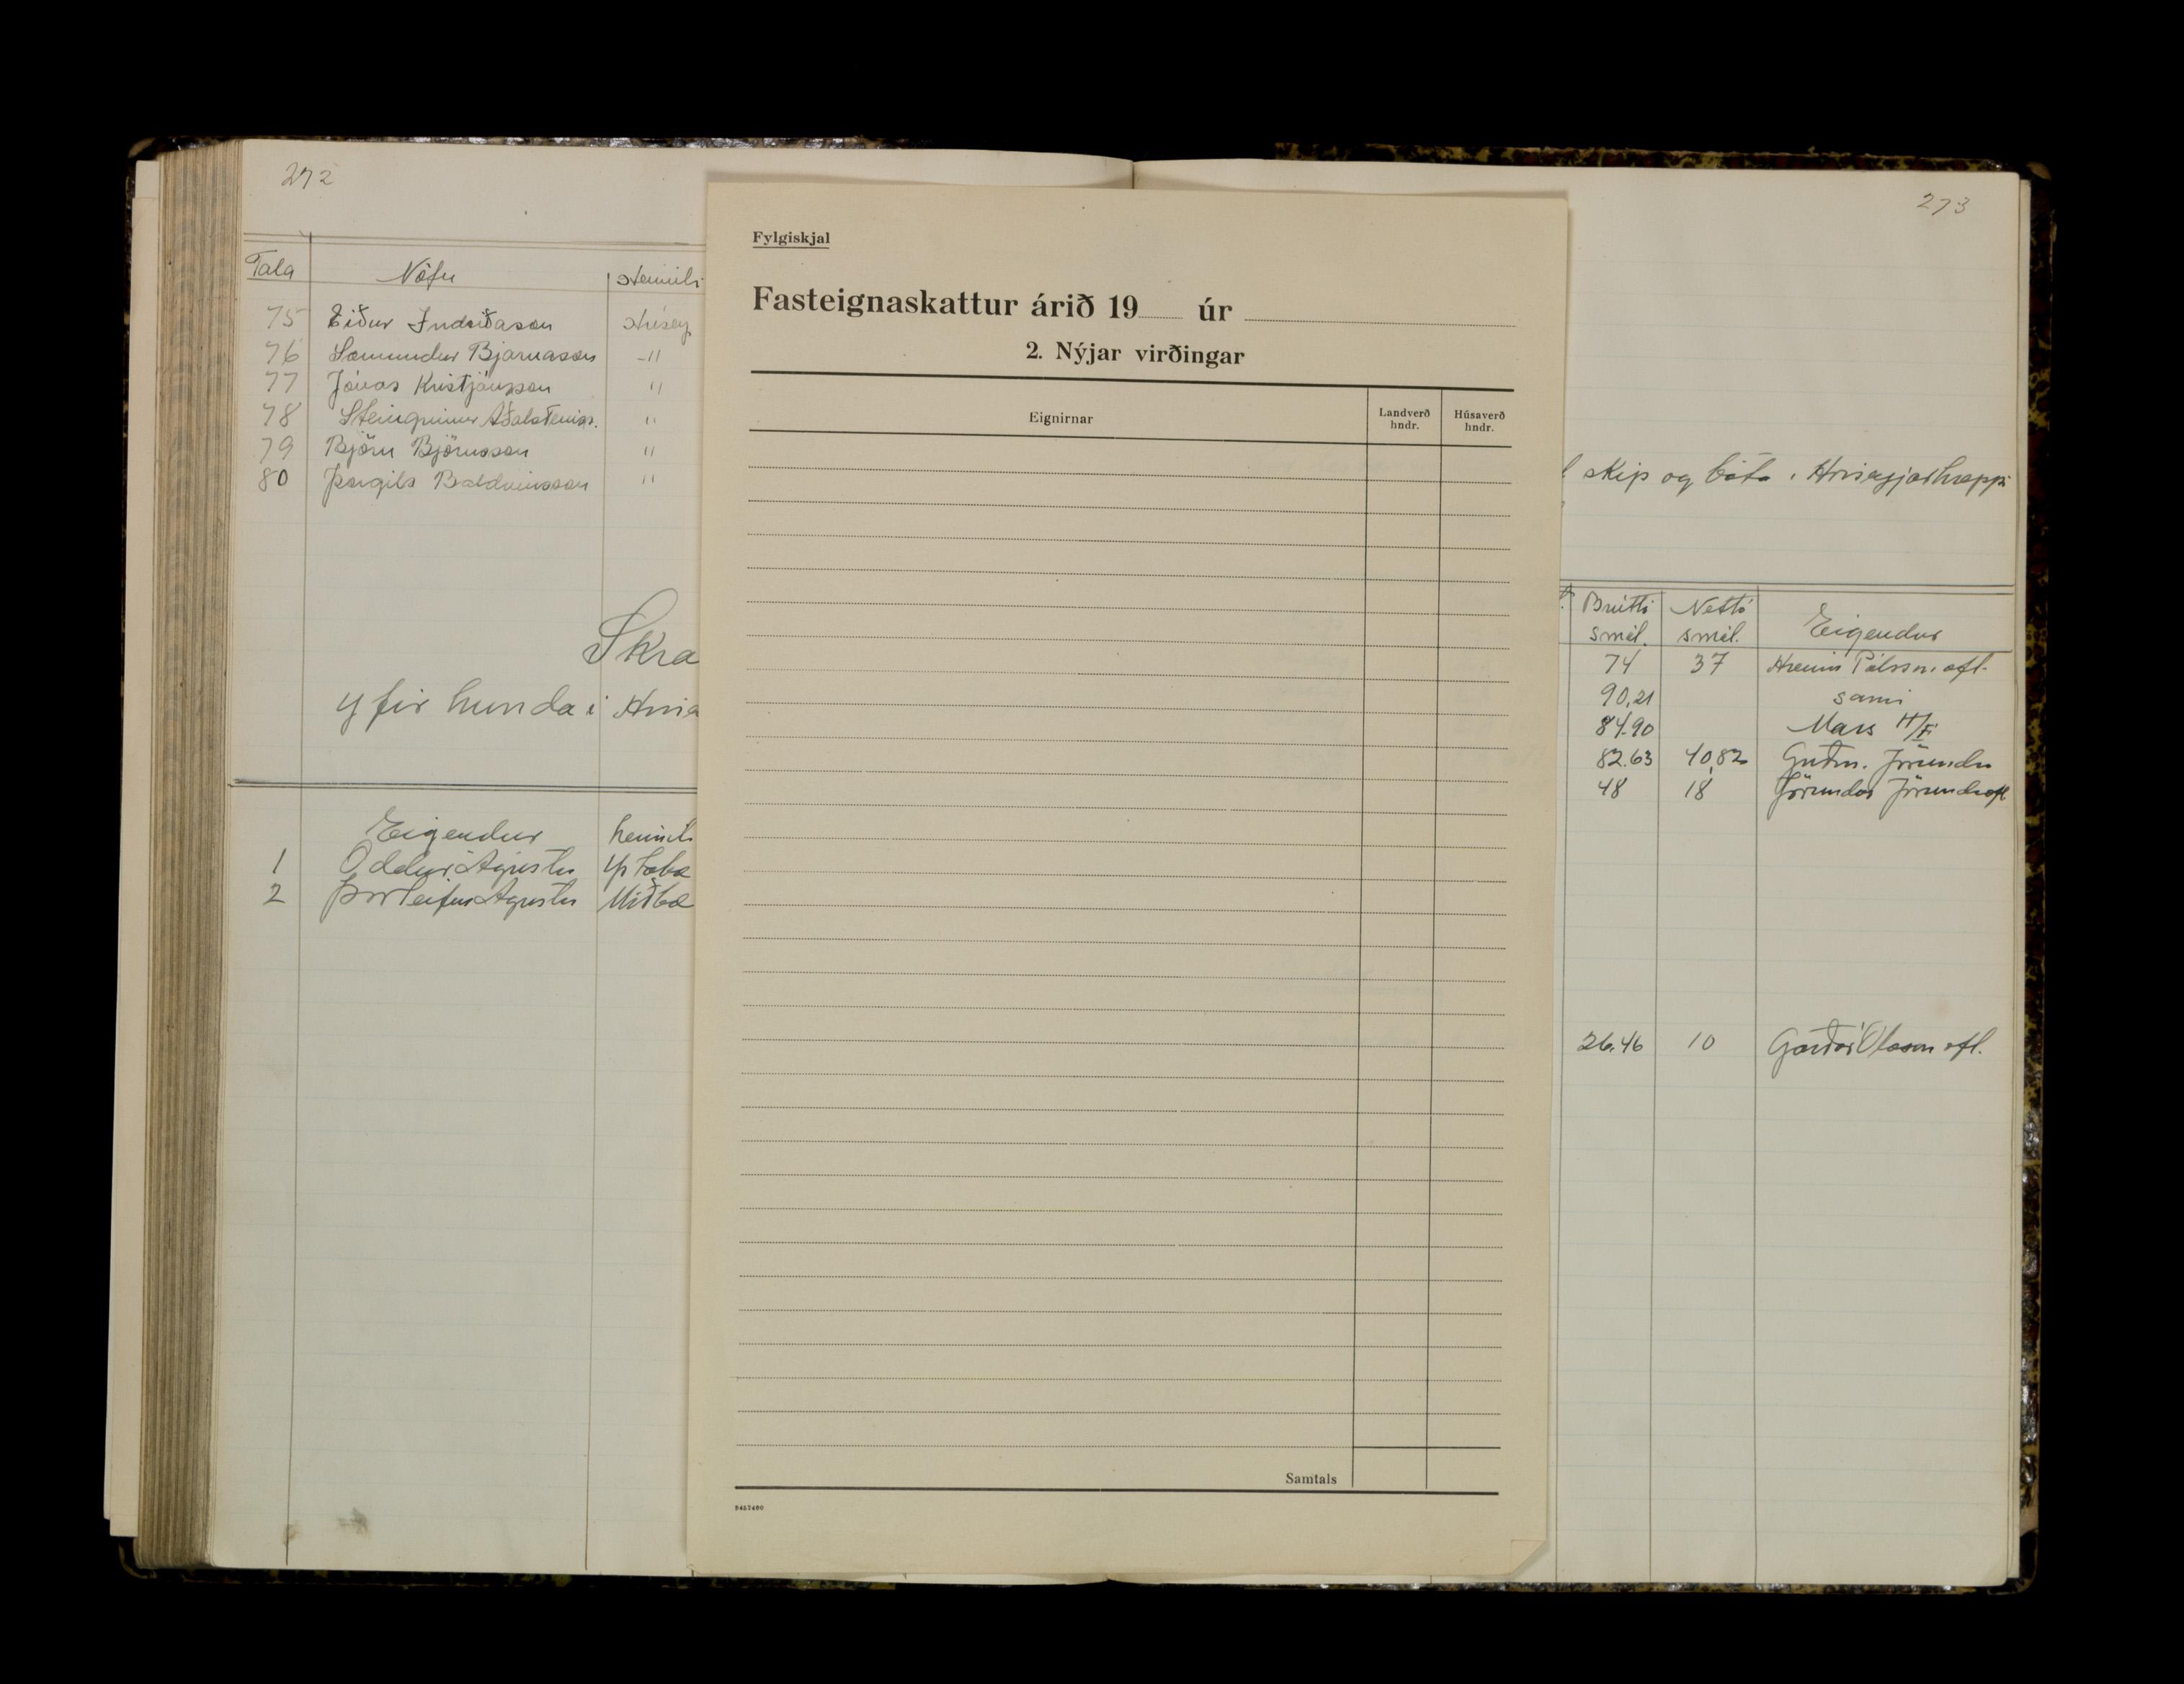 272
Tala Nöfn Heimili
75 Eiður Indriðason Hrísey
76 Sæmundur Bjarnason -"
77 Jónas Kristjánsson "
78 Steingrímur Aðalsteinss. "
79 Björn Björnsson "
80 Þorgils Baldvinsson "
Skrá
yfir hunda í Hrís
Eigendur heimili
1 Oddur Ágústss Ystabæ
2 Þorleifur Ágústss Miðbæ
Fylgiskjal
Fasteignaskattur árið 19 úr
2. Nýjar virðingar
Eignirnar Landverð hndr. Húsaverð hndr.
Samtals
273
skip og báta í Hríseyjarhreppi
Brúttó smál. Nettó smál. Eigendur
74 37 Hreinn Pálsson ofl.
90,21 sami
84.90 Mars H/F
82.63 40,82 Guðm. Jörunds
48 18 Jörundur Jörundss ofl
26.46 10 Garðar Ólason ofl.